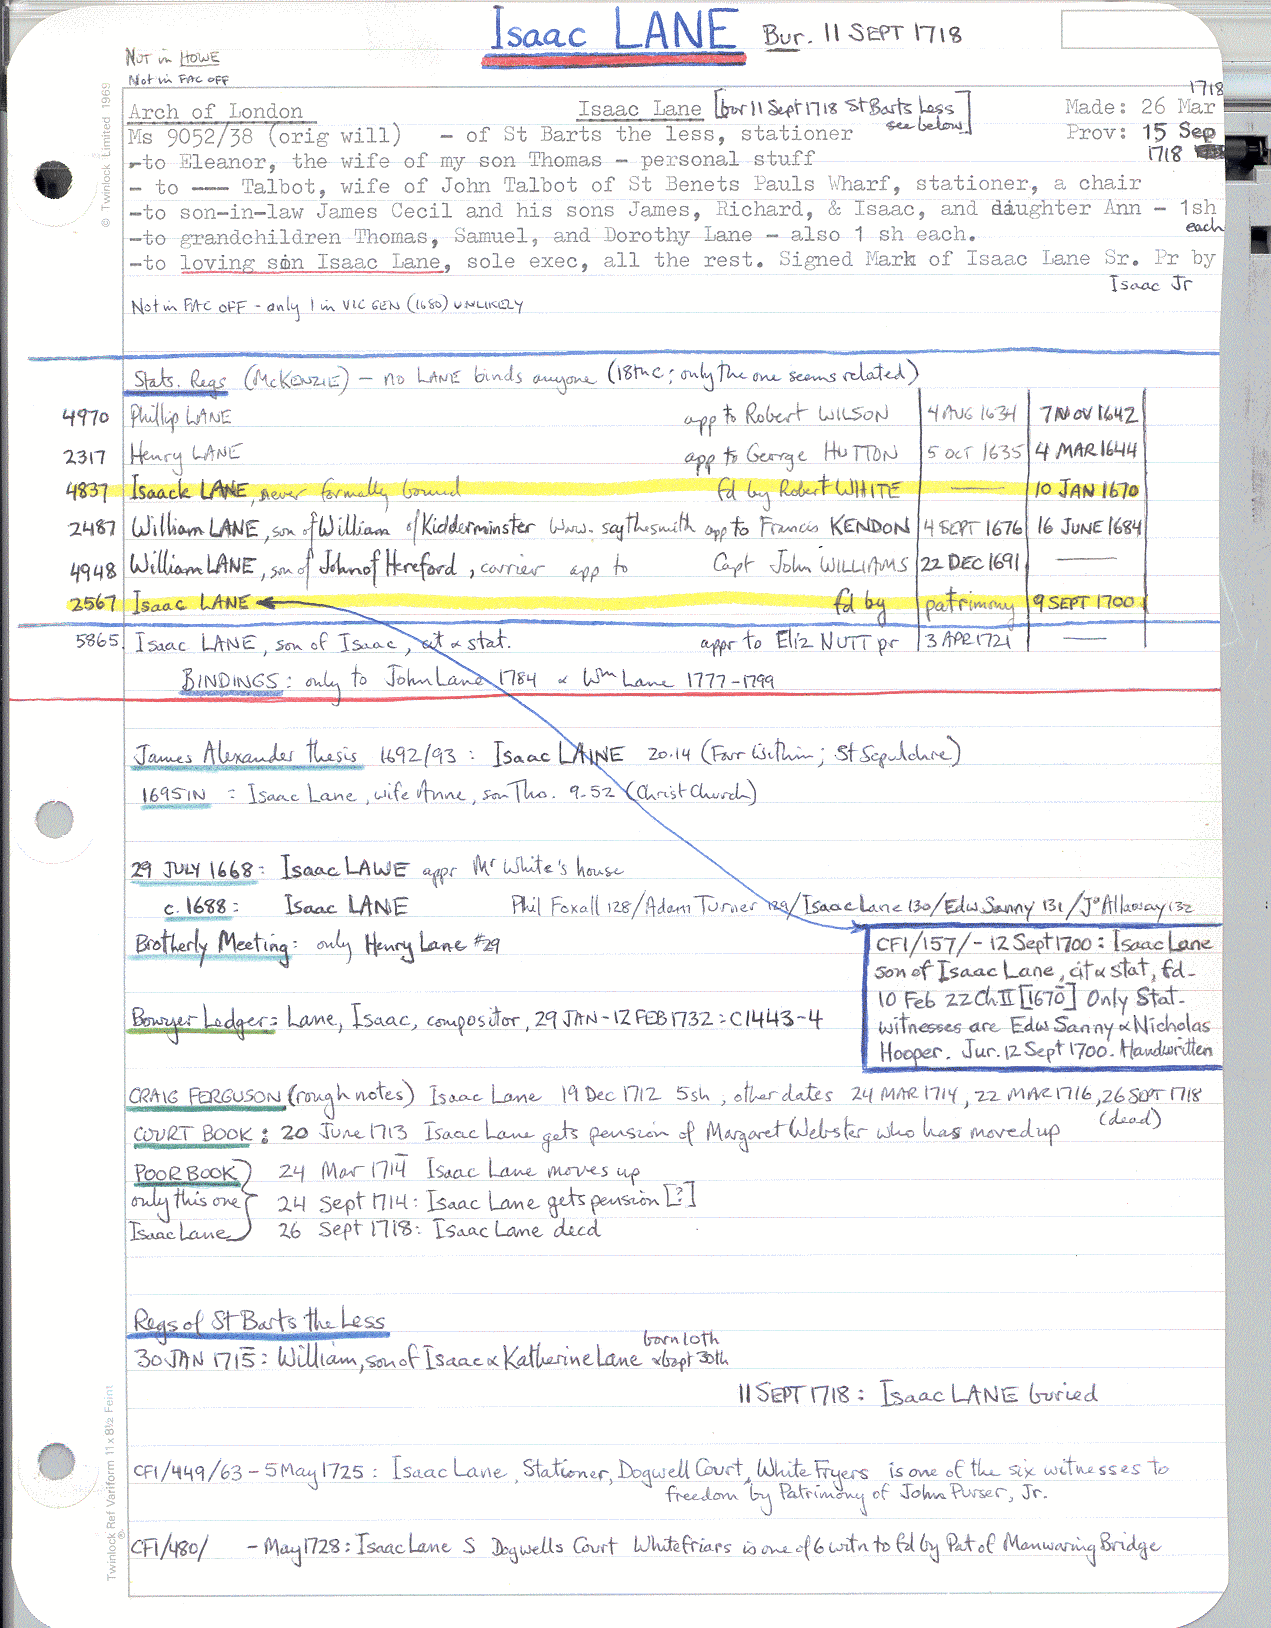 Isaac LANE Bur. 11 SEPT 1718
Not in HOWE
Not in FAC OFF
1718
Arch of London Isaac Lane [bur 11 Sept 1718 St Barts Less see below] Made: 26 Mar
Ms 9052/38 (orig will) - of St Barts the less, stationer Prov: 15 Sep
1718
-to Eleanor, the wife of my son Thomas - personal stuff
- to --- Talbot, wife of John Talbot of St Benets Pauls Wharf, stationer, a chair
-to son-in-law James Cecil and his sons James, Richard, & Isaac, and daughter Ann - 1sh each
-to grandchildren Thomas, Samuel, and Dorothy Lane - also 1 sh each.
-to loving son Isaac Lane, sole exec, all the rest. Signed Mark of Isaac Lane Sr. Pr by
Isaac Jr
Not in FAC OFF - only 1 in VIC GEN (1680) UNLIKELY
Stats. Regs (McKENZIE) - no LANE binds anyone (18th c; only the one seems related)
4970 Phillip LANE app to Robert WILSON 4 AUG 1634 7 NOV 1642
2317 Henry LANE app to George HUTTON 5 OCT 1635 4 MAR 1644
4837 Isaack LANE, never formally bound fd by Robert WHITE — 10 JAN 1670
2487 William LANE, son of William of Kidderminster Worw. saythesmith app to Francis KENDON 4 SEPT 1676 16 JUNE 1684
4948 William LANE, son of John of Hereford, carrier app to Capt John WILLIAMS 22 DEC 1691 —
2567 Isaac LANE fd by patrimony 9 SEPT 1700
5865 Isaac LANE, son of Isaac, cit & stat. appr to Eliz NUTT pr 3 APR 1721 —
BINDINGS: only to John Lane 1784 & Wm Lane 1777-1799
James Alexander thesis 1692/93: Isaac LAINE 20.14 (Farr Within; St Sepulchre)
1695 IN = Isaac Lane, wife Anne, son Tho. 9.52 (Christ Church)
29 JULY 1668: Isaac LAWE appr Mr White's house
c. 1688: Isaac LANE Phil Foxall 128/Adam Turner 129/Isaac Lane 130/Edw Sanny 131/Jo Allaway 132
Brotherly Meeting: only Henry Lane #29
CF1/157/- 12 Sept 1700: Isaac Lane
son of Isaac Lane, cit & stat, fd-
10 Feb 22 Ch II [1670] Only Stat-
witnesses are Edw Sanny & Nicholas
Hooper. Jur. 12 Sept 1700. Handwritten
Bowyer Ledger: Lane, Isaac, compositor, 29 JAN-12 FEB 1732: C1443-4
CRAIG FERGUSON (rough notes) Isaac Lane 19 Dec 1712 5sh, other dates 24 MAR 1714, 22 MAR 1716, 26 SEPT 1718
(dead)
COURT BOOK: 20 June 1713 Isaac Lane gets pension of Margaret Webster who has moved up
POOR BOOK 24 Mar 1714 Isaac Lane moves up
only this one 24 Sept 1714: Isaac Lane gets pension [?]
Isaac Lane 26 Sept 1718: Isaac Lane decd
Regs of St Barts the Less
30 JAN 1715: William, son of Isaac & Katherine Lane born 10th & bapt 30th
11 SEPT 1718: Isaac LANE buried
CF1/449/63 - 5 May 1725: Isaac Lane, Stationer, Dogwell Court, White Fryers is one of the six witnesses to
freedom by Patrimony of John Purser, Jr.
CF1/480/ - May 1728: Isaac Lane S Dogwells Court Whitefriars is one of 6 witn to fd by Pat of Manwaring Bridge
© Twinlock Limited 1969
Twinlock Ref Variform 11 x 8½ Feint